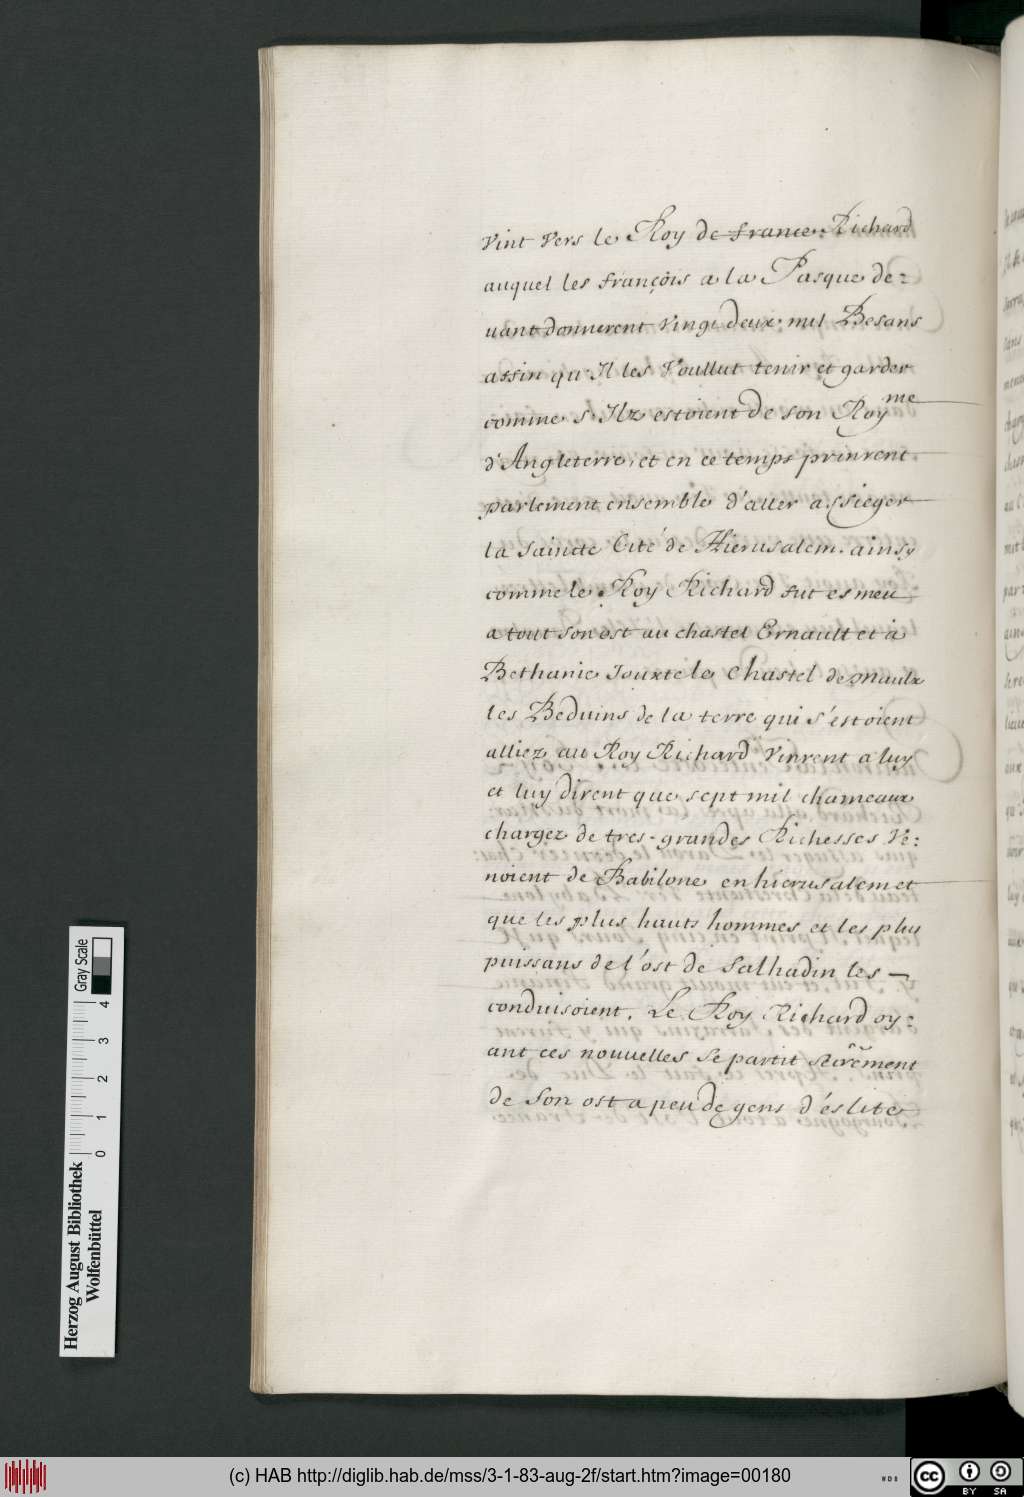 vint vers le Roy de france Richard
auquel les françois a la Pasque de=
uant donnerent vingt deux mil Besans
affin qu'Il les voullut tenir et garder
comme s'Ilz estoient de son Roy^me
d'Angleterre, et en ce temps prinrent
parlement ensemble d'aller assieger
la saincte Cité de Hierusalem. ainsy
comme le Roy Richard fut esmeu
a tout son ost au chastel Ernault et à
Bethanie Jouxte le chastel de Maulx
les Beduins de la terre qui s'estoient
alliez au Roy Richard vinrent a luy
et luy dirent que sept mil chameaux
chargez de tres-grandes Richesses Ve=
noient de Babilone en hierusalem et
que les plus hauts hommes et les plus
puissans de l'ost de Salhadin les —
conduisoient. Le Roy Richard oy=
ant ces nouuelles se partit secretement
de son ost a peu de gens d'eslite
Gray Scale
0 1 2 3 4
Herzog August Bibliothek
Wolfenbüttel
(c) HAB http://diglib.hab.de/mss/3-1-83-aug-2f/start.htm?image=00180
WDB
cc BY SA